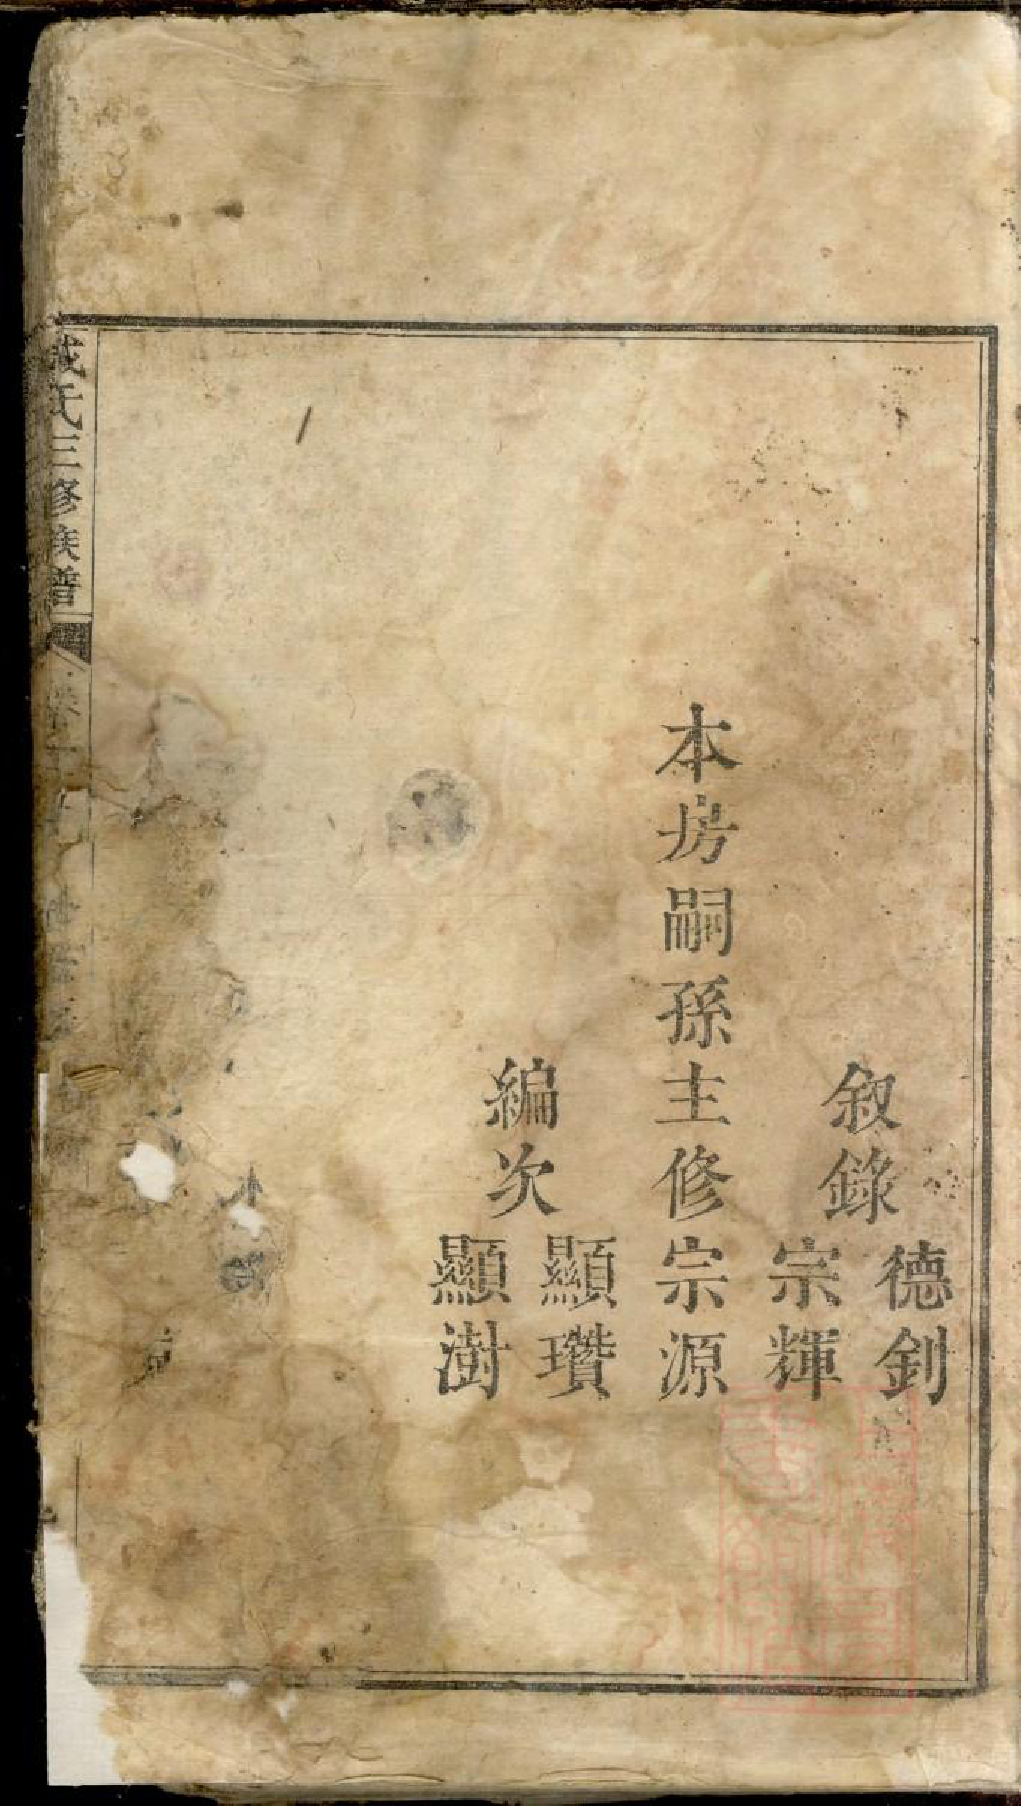 德釗
敘錄
宗輝
本房嗣孫主修宗源
顯瓚
編次
顯澍
氏三修族譜